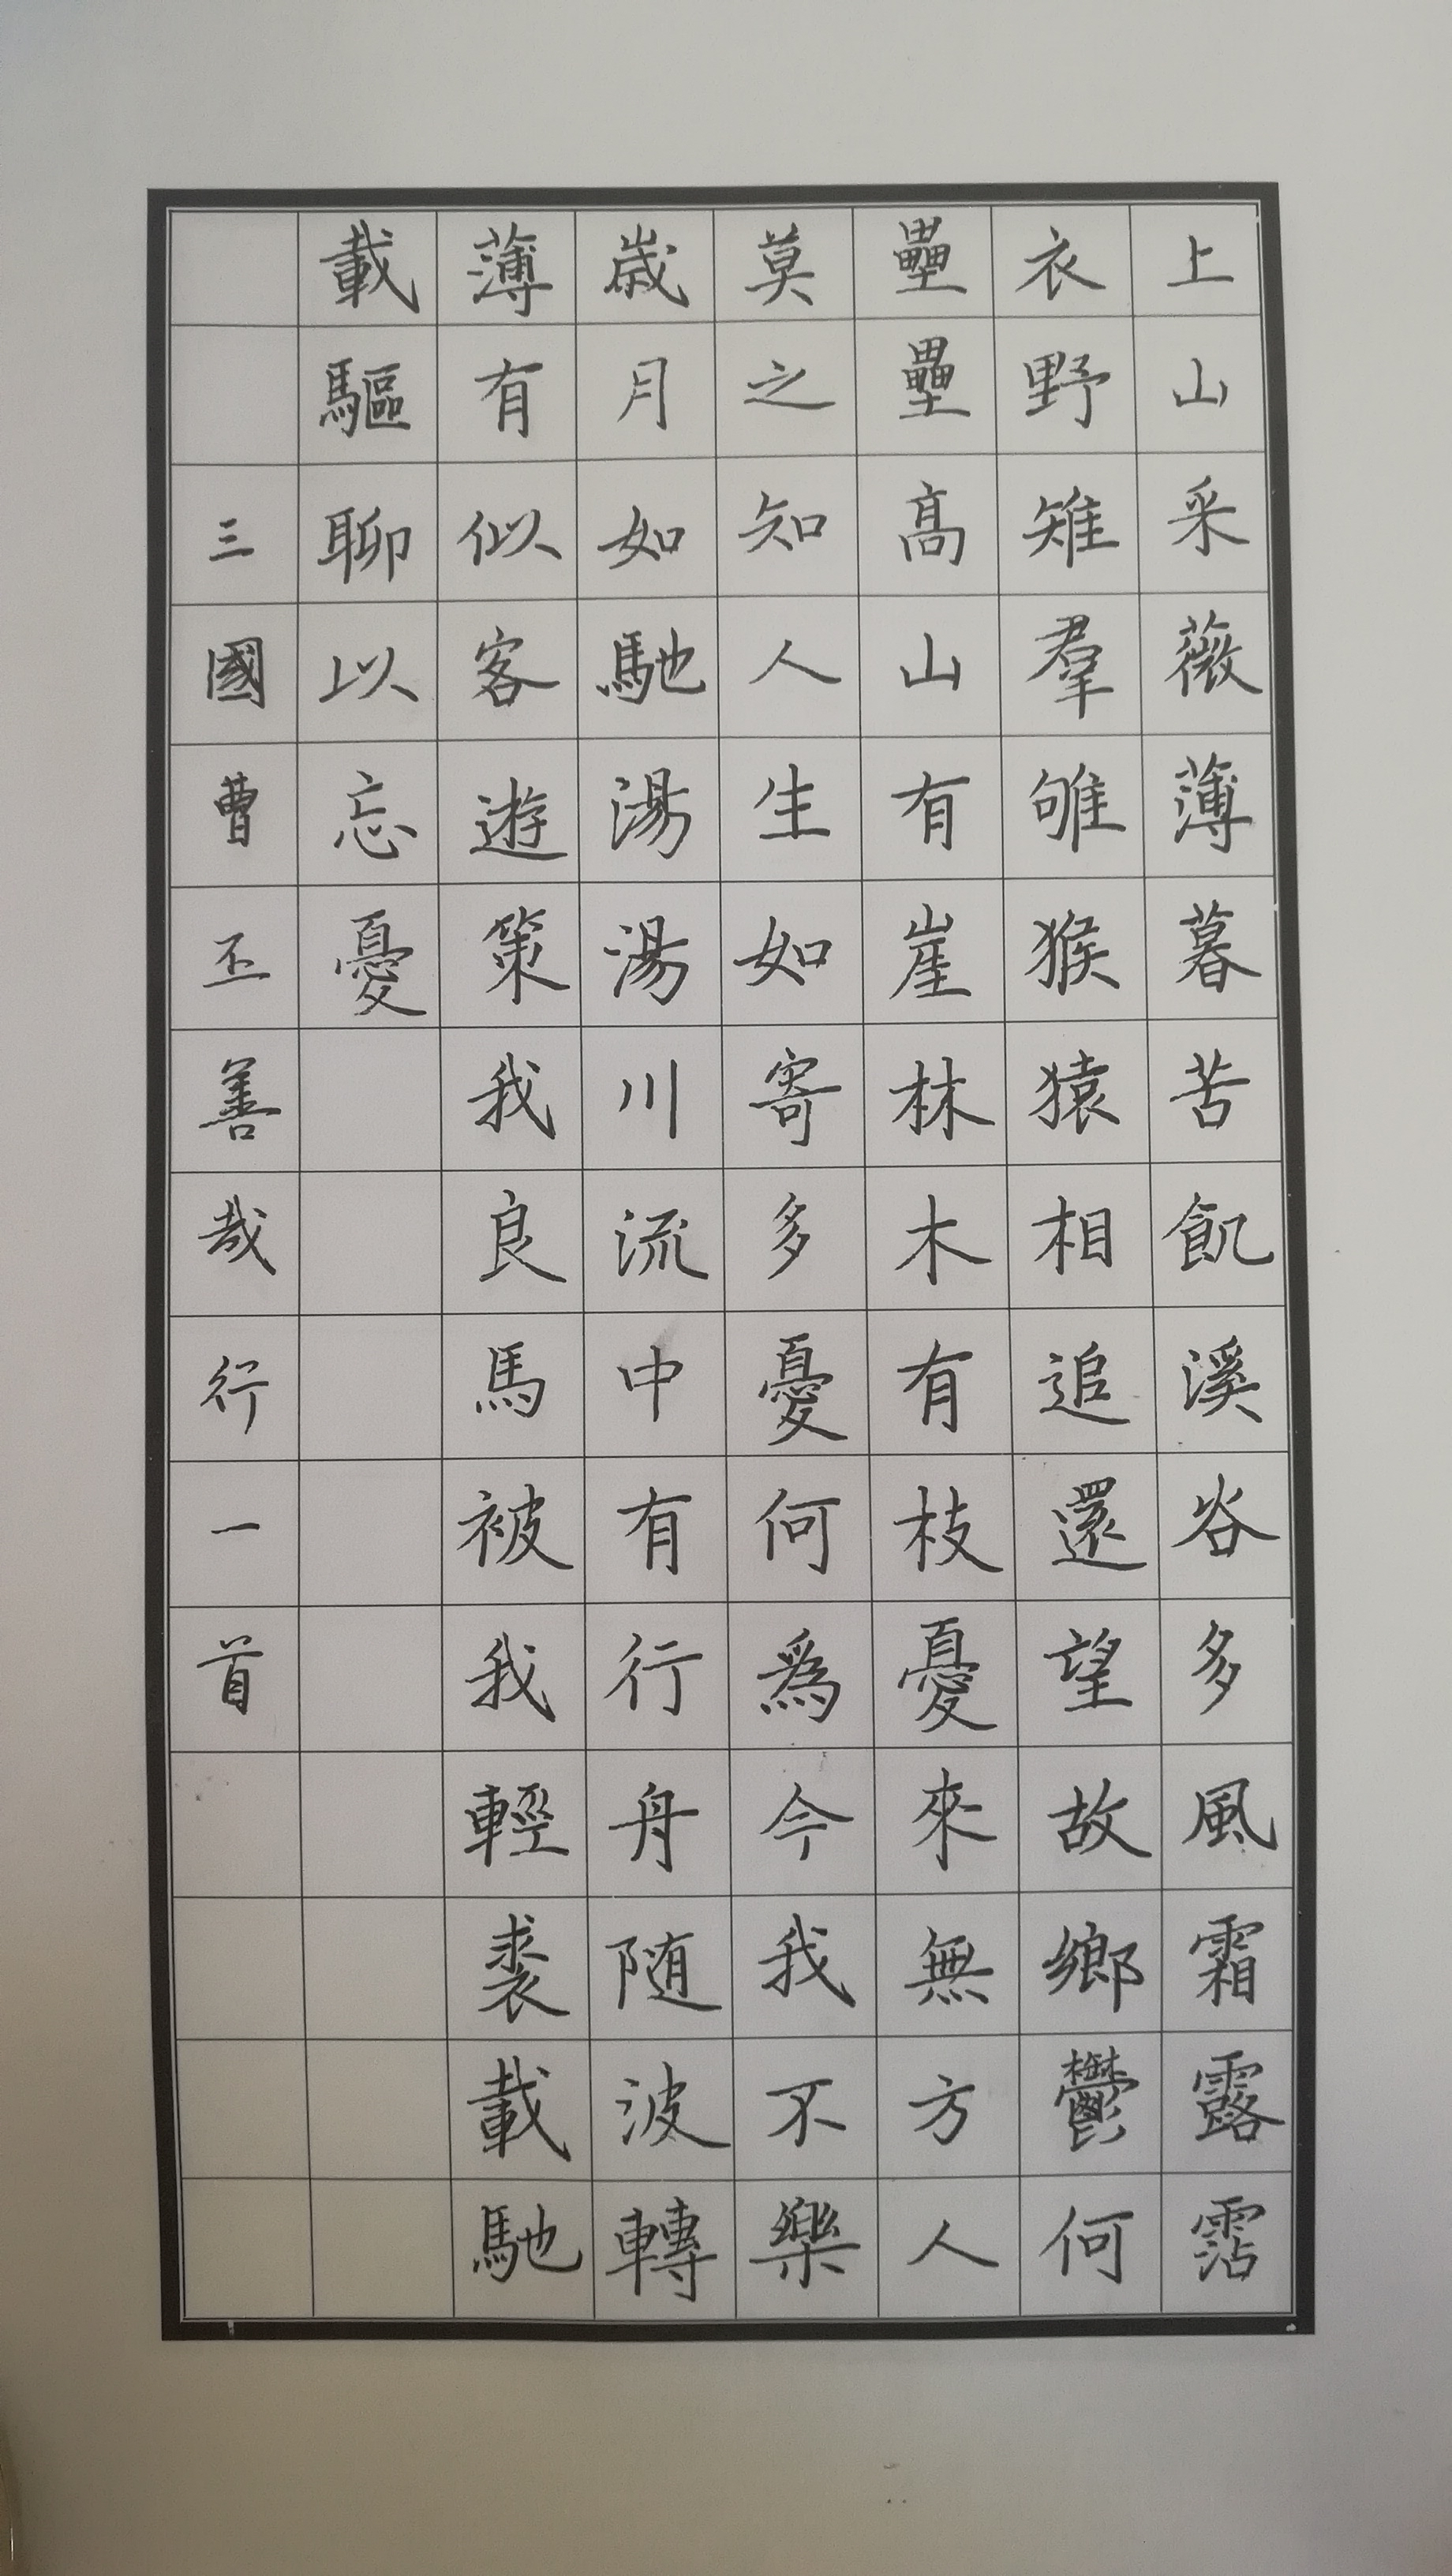 上山采薇薄暮苦飢溪谷多風霜露霑
衣野雉羣雊猴猿相追還望故鄉鬱何
壘壘高山有崖林木有枝憂來無方人
莫之知人生如寄多憂何為今我不樂
歲月如馳湯湯川流中有行舟随波轉
薄有似客遊策我良馬被我輕裘載馳
載驅聊以忘憂
三國曹丕善哉行一首